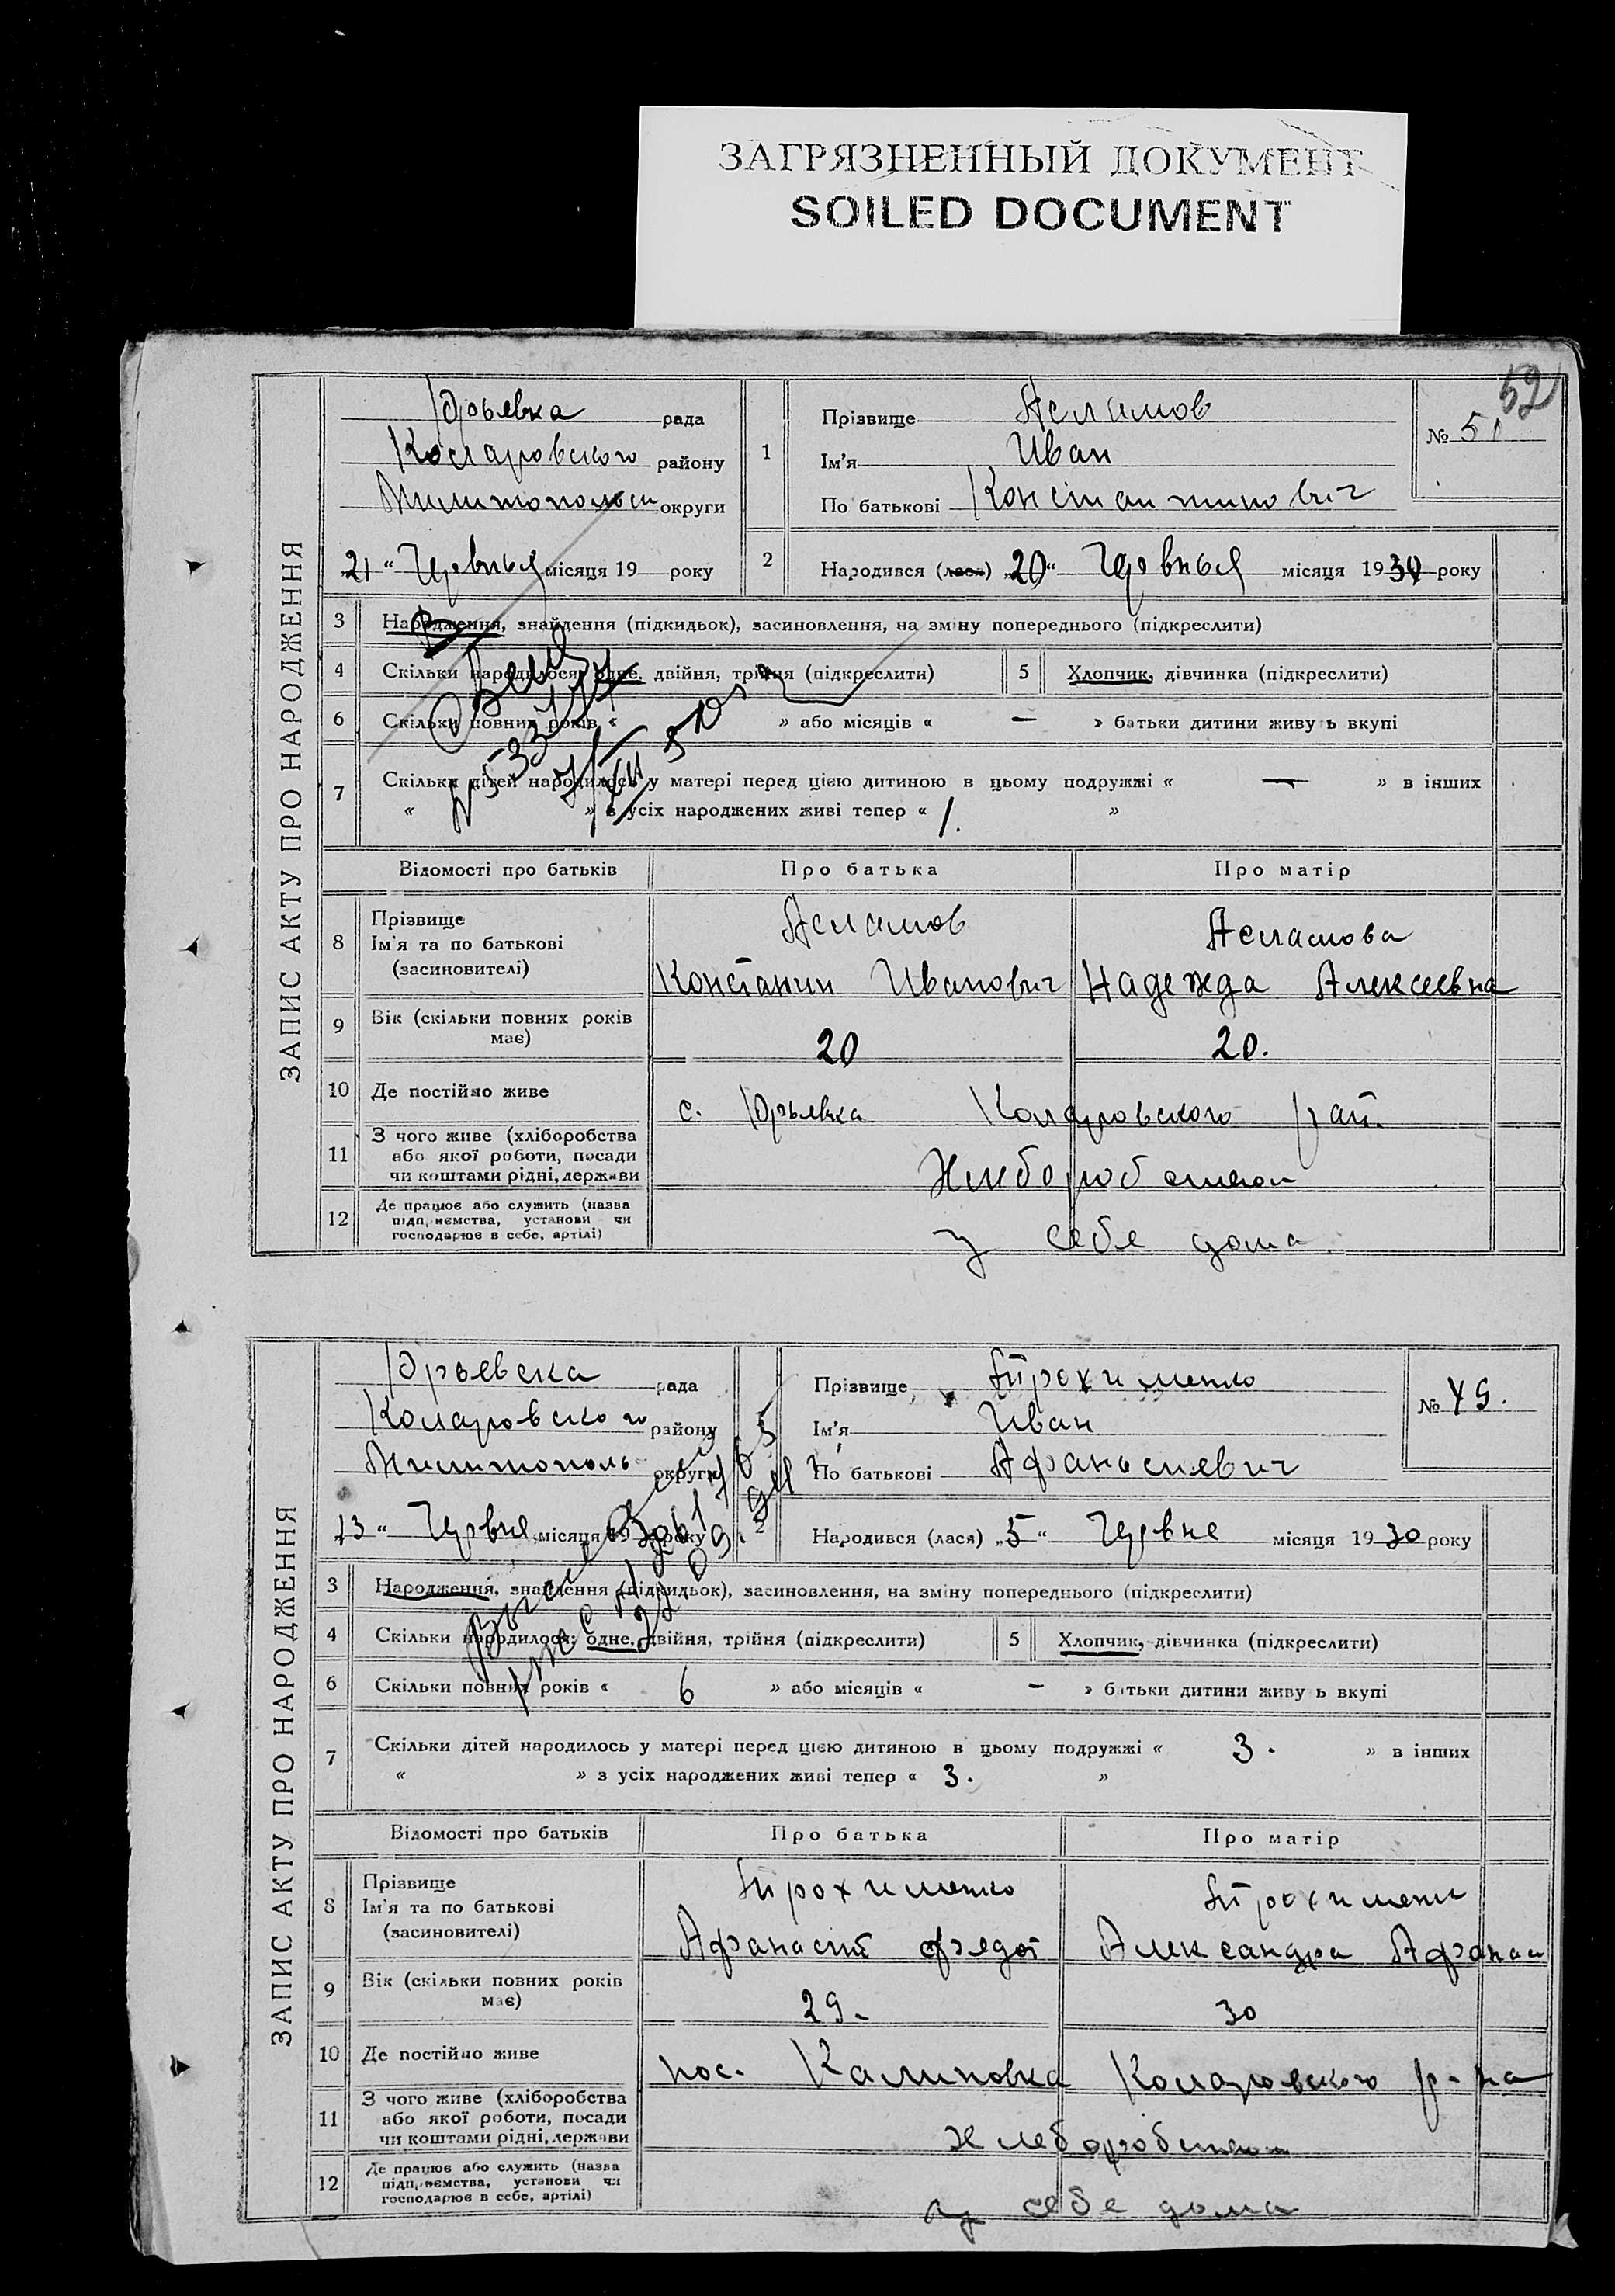 ЗАГРЯЗНЕННЫЙ ДОКУМЕНТ
SOILED DOCUMENT
52
ЗАПИС АКТУ ПРО НАРОДЖЕННЯ
Юрьевка рада
Коларовского району
округи
21 “ місяця 19 року
1
Прізвище Асламов
Ім'я Иван
По батькові Константинович
№ 51
2
Народився (лася) „20“ місяця 1930 року
3 Народження, знайдення (підкидьок), засиновлення, на зміну попереднього (підкреслити)
4 Скільки народилося: одне, двійня, трійня (підкреслити)
5 Хлопчик, дівчинка (підкреслити)
6 Скільки повних років « » або місяців « — » батьки дитини живуть вкупі
7 Скільки дітей народилось у матері перед цією дитиною в цьому подружжі « — » в інших
« » з усіх народжених живі тепер « 1. »
Відомості про батьків Про батька Про матір
8 Прізвище
Ім'я та по батькові
(засиновителі)
Асламов
Константин Иванович
Асламова
Надежда Алексеевна
9 Вік (скільки повних років
має)
20 20.
10 Де постійно живе
с. Юрьевка Коларовского рай.
11 З чого живе (хліборобства
або якої роботи, посади
чи коштами рідні, держави
12 Де працює або служить (назва
підприємства, установи чи
господарює в себе, артілі)
у себе дома
ЗАПИС АКТУ ПРО НАРОДЖЕННЯ
Юрьевска рада
Коларовского району
округи
13 “ Червня місяця 1930 року
Прізвище Трохименко
Ім'я Иван
По батькові Афанасиевич
№ 49.
2
Народився (лася) „5“ Червня місяця 1930 року
3 Народження, знайдення (підкидьок), засиновлення, на зміну попереднього (підкреслити)
4 Скільки народилося: одне, двійня, трійня (підкреслити)
5 Хлопчик, дівчинка (підкреслити)
6 Скільки повних років « 6 » або місяців « — » батьки дитини живуть вкупі
7 Скільки дітей народилось у матері перед цією дитиною в цьому подружжі « 3. » в інших
« » з усіх народжених живі тепер « 3. »
Відомості про батьків Про батька Про матір
8 Прізвище
Ім'я та по батькові
(засиновителі)
Трохименко
Афанасий Федот
Трохименк
Александра Афанас
9 Вік (скільки повних років
має)
29. 30
10 Де постійно живе
пос. Калиновка Коларовского р-на
11 З чого живе (хліборобства
або якої роботи, посади
чи коштами рідні, держави
12 Де працює або служить (назва
підприємства, установи чи
господарює в себе, артілі)
у себе дома